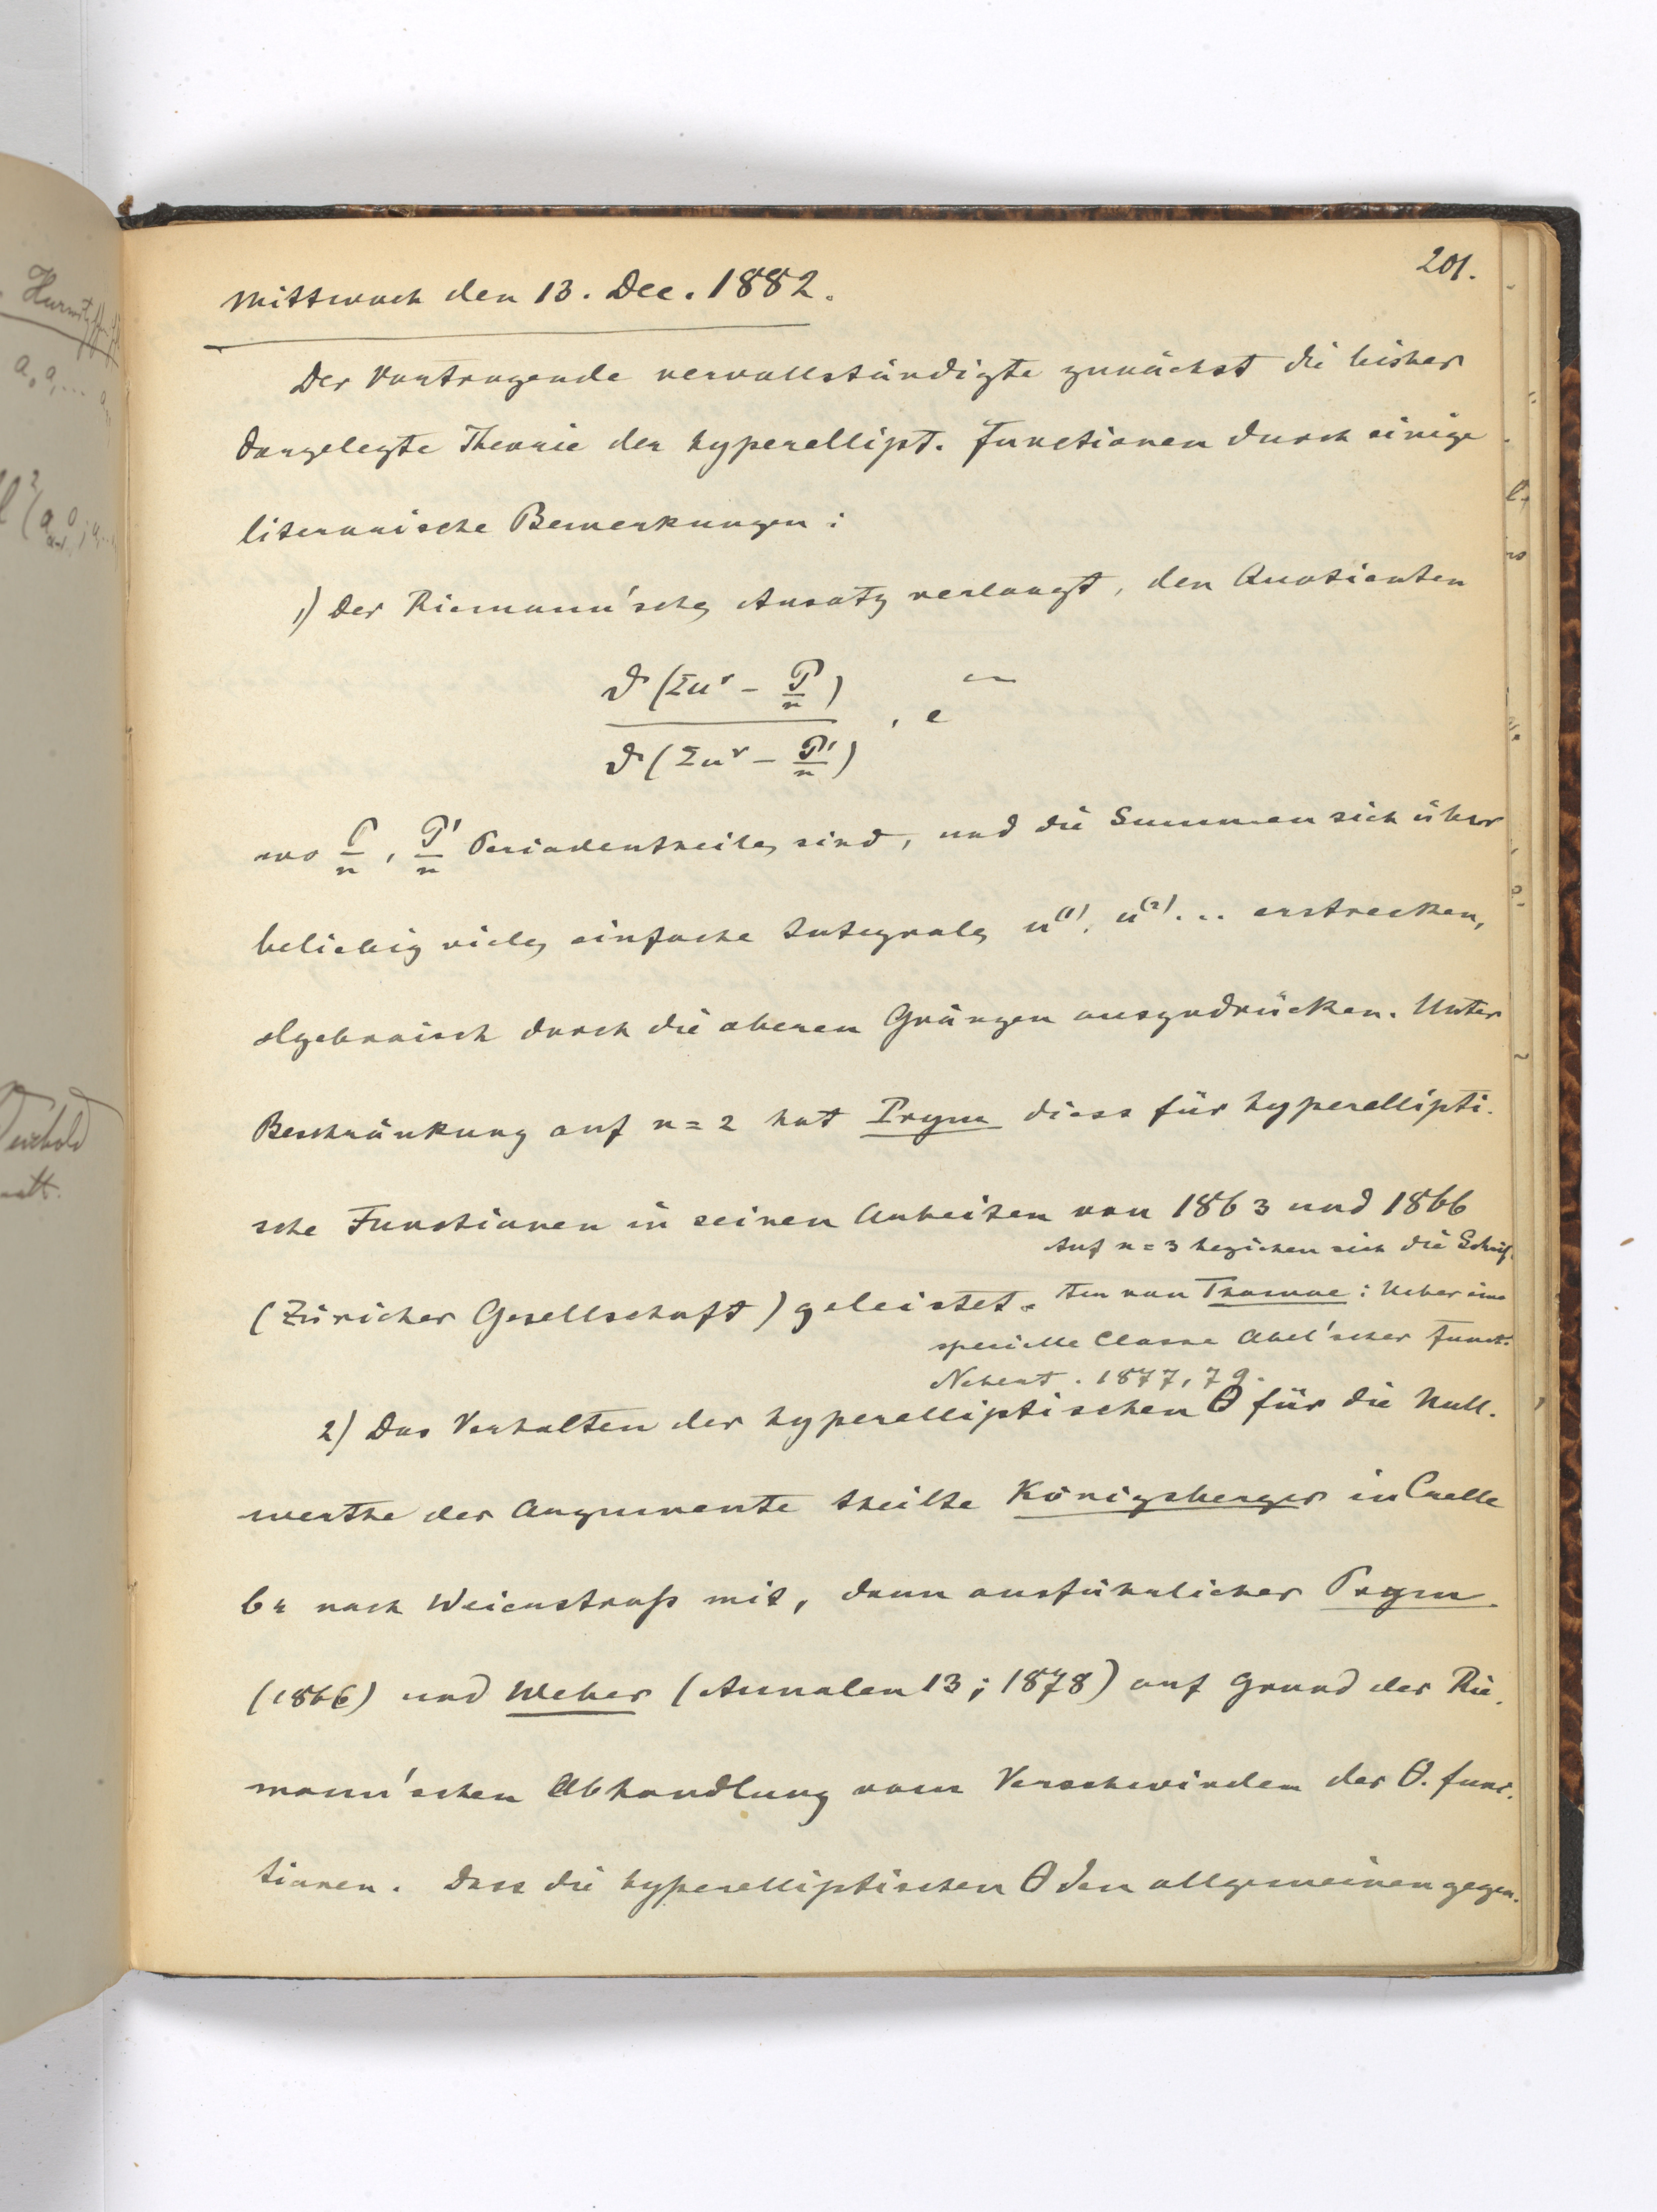 201.
Mittwoch den 13. Dec. 1882.
Der Vortragende vervollständigte zunächst die bisher
dargelegte Theorie der hyperellipt. Functionen durch einige
literarische Bemerkungen:
1) Der Riemann'sche Ansatz verlangt, den Quotienten
ϑ(Σuᵛ - P/n) / ϑ(Σuᵛ - P'/n) . e
wo P/n, P'/n Periodentheile sind, und die Summen sich über
beliebig viele einfache Integrale u⁽¹⁾, u⁽²⁾... erstrecken,
algebraisch durch die oberen Gränzen auszudrücken. Unter
Beschränkung auf n=2 hat Prym diess für hyperellipti-
sche Functionen in seinen Arbeiten von 1863 und 1866
(Züricher Gesellschaft) geleistet.
Auf n=3 beziehen sich die Schrif-
ten von Thomae: Ueber eine
specielle Classe Abel'scher Funct.
Nebert. 1877, 79.
2) Das Verhalten der hyperelliptischen θ für die Null-
werthe der Argumente theilte Königsberger in Crelle
64 nach Weierstraß mit, dann ausführlicher Prym
(1866) und Weber (Annalen 13; 1878) auf Grund der Rie-
mann'schen Abhandlung vom Verschwinden der θ. func-
tionen. Dass die hyperelliptischen θ den allgemeinen gegen-